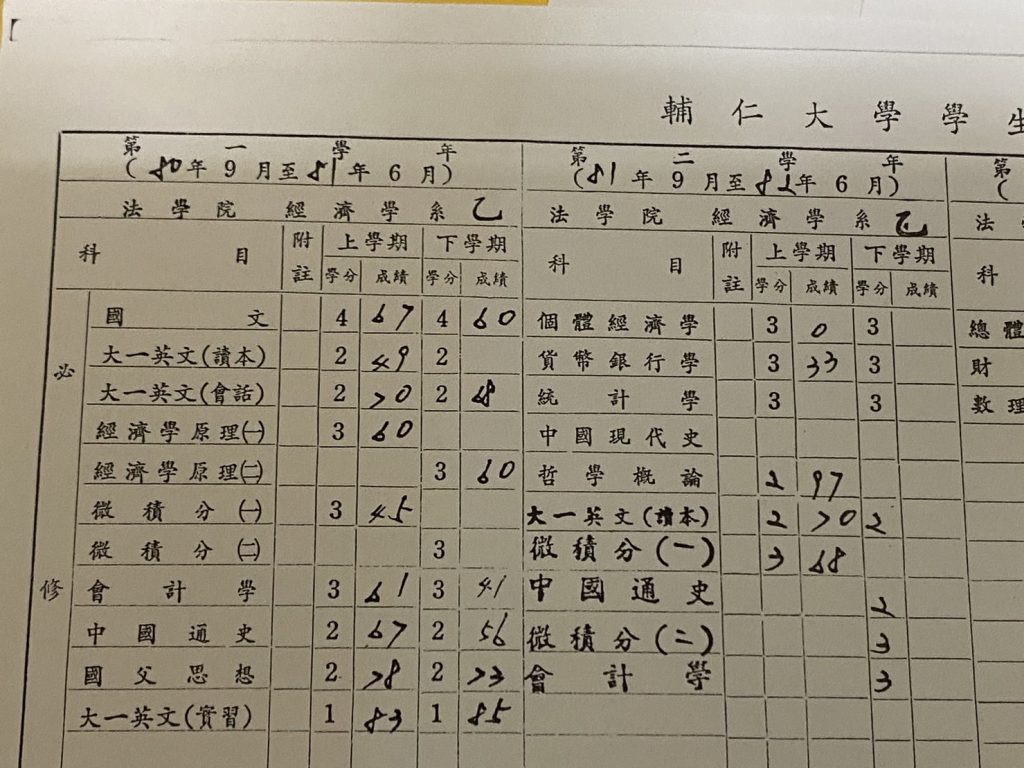 輔仁大學學生
第一學年
(80年9月至81年6月)
法學院 經濟學系 乙
科目 附註 上學期 下學期
學分 成績 學分 成績
必修
國文 4 67 4 60
大一英文(讀本) 2 49 2
大一英文(會話) 2 70 2 68
經濟學原理㈠ 3 60
經濟學原理㈡ 3 60
微積分㈠ 3 45
微積分㈡ 3
會計學 3 61 3 41
中國通史 2 67 2 56
國父思想 2 78 2 73
大一英文(實習) 1 83 1 85
第二學年
(81年9月至82年6月)
法學院 經濟學系 乙
科目 附註 上學期 下學期
學分 成績 學分 成績
個體經濟學 3 0 3
貨幣銀行學 3 33 3
統計學 3 3
中國現代史
哲學概論 2 97
大一英文(讀本) 2 70 2
微積分(一) 3 68
中國通史 2
微積分(二) 3
會計學 3
第
(
法學
科
總體
財
數理